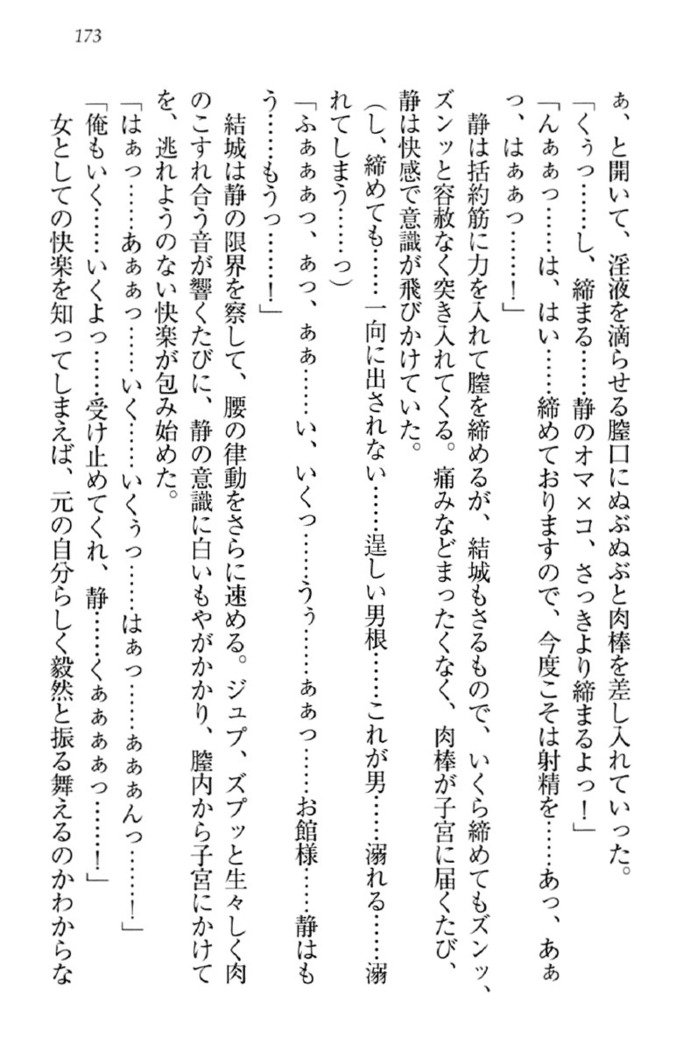 173
ぁ、と開いて、淫液を滴らせる膣口にぬぶぬぶと肉棒を差し入れていった。
「くぅっ……し、締まる……静のオマ×コ、さっきより締まるよっ！」
「んぁぁっ……は、はい……締めておりますので、今度こそは射精を……あっ、あぁ
っ、はぁぁっ……！」
静は括約筋に力を入れて膣を締めるが、結城もさるもので、いくら締めてもズンッ、
ズンッと容赦なく突き入れてくる。痛みなどまったくなく、肉棒が子宮に届くたび、
静は快感で意識が飛びかけていた。
（し、締めても……一向に出されない……逞しい男根……これが男……溺れる……溺
れてしまう……っ）
「ふぁぁぁっ、あっ、ぁぁ……い、いくっ……うぅ……ぁぁっ……お館様……静はも
う……もうっ……！」
結城は静の限界を察して、腰の律動をさらに速める。ジュプ、ズプッと生々しく肉
のこすれ合う音が響くたびに、静の意識に白いもやがかかり、膣内から子宮にかけて
を、逃れようのない快楽が包み始めた。
「はぁっ……あぁぁっ……いく……いくぅっ……はぁっ……ぁぁぁんっ……！」
「俺もいく……いくよっ……受け止めてくれ、静……くぁぁぁぁっ……！」
女としての快楽を知ってしまえば、元の自分らしく毅然と振る舞えるのかわからな